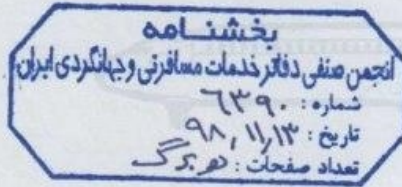 بخشنامه
انجمن صنفی دفاتر خدمات مسافرتی و جهانگردی ایران
شماره: ۶۳۹۰
تاریخ: ۹۸,۱۱,۱۳
تعداد صفحات: برگ